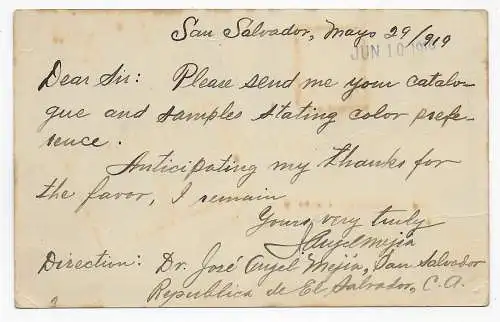 San Salvador, Mayo 29/919
JUN 10 1919
Dear Sir: Please send me your catalo-
gue and samples stating color prefe-
rence.
Anticipating my thanks for
the favor, I remain
Yours very truly
J Angel Mejía
Direction: Dr. José Angel Mejía, San Salvador
Republica de El Salvador, C.A.